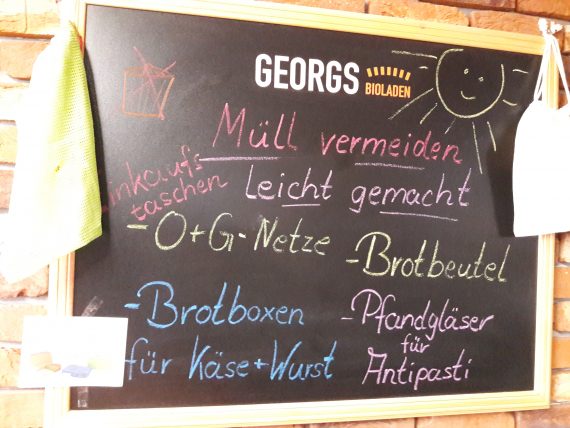 GEORGS
BIOLADEN
Müll vermeiden
Leicht gemacht
inkaufs
taschen
-O+G-Netze
-Brotbeutel
-Brotboxen
für Käse+Wurst
-Pfandgläser
für
Antipasti